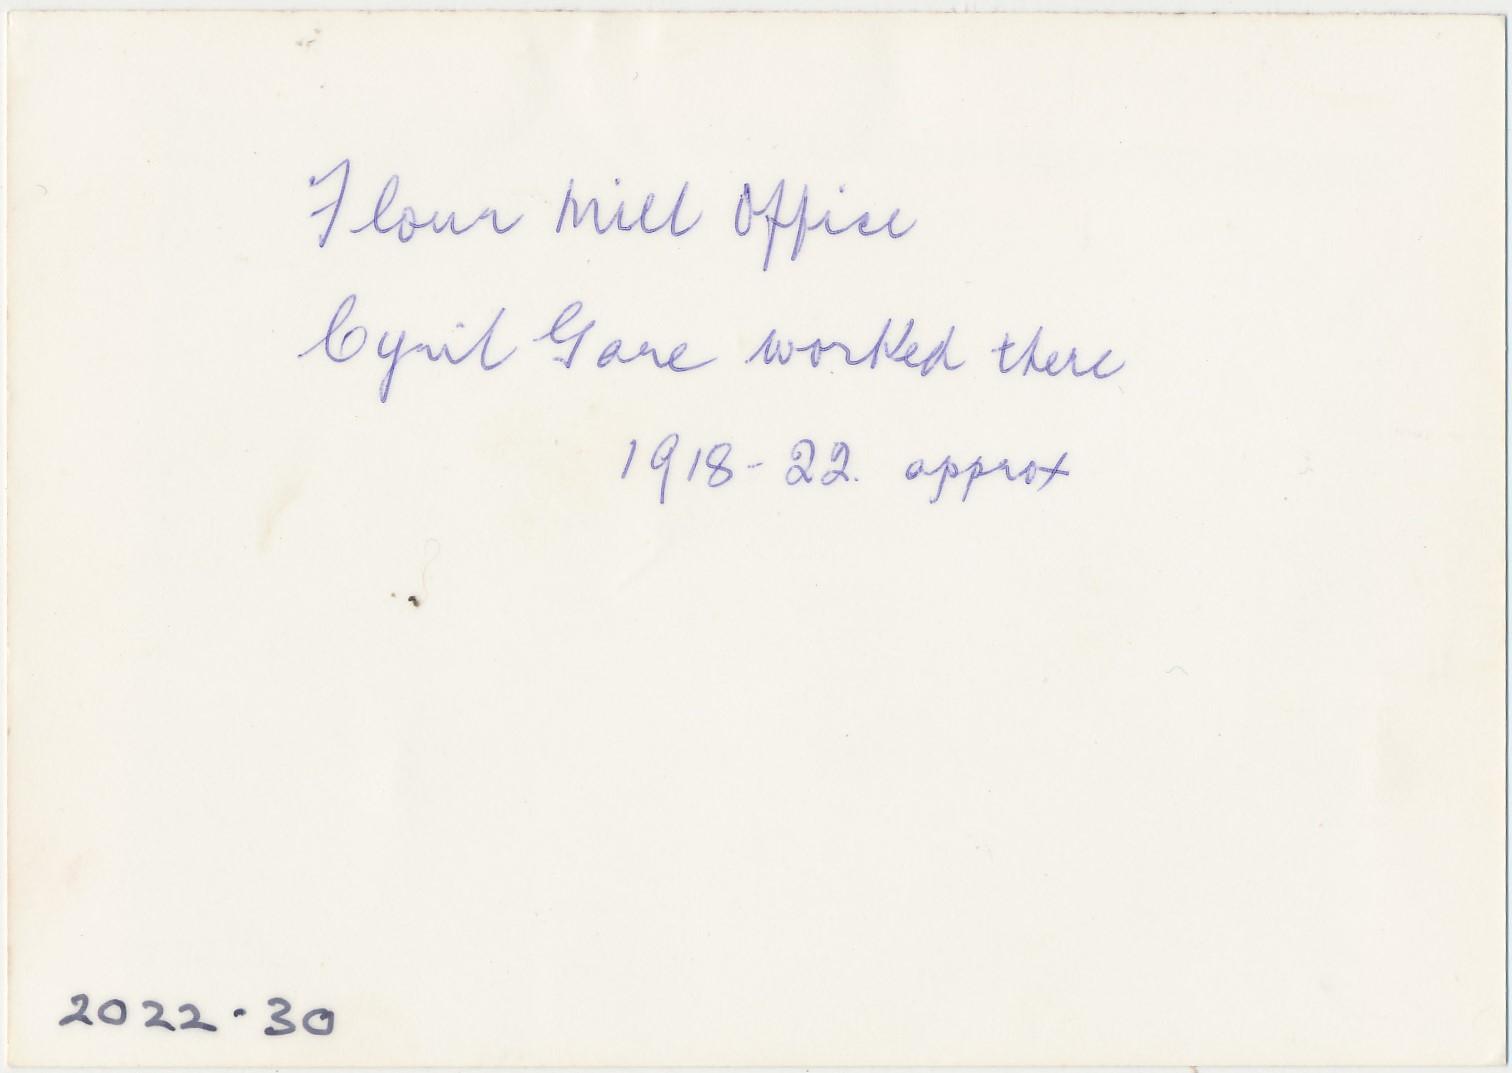 Flour Mill Office
Cyril Gare worked there
1918-22. approx
2022.30